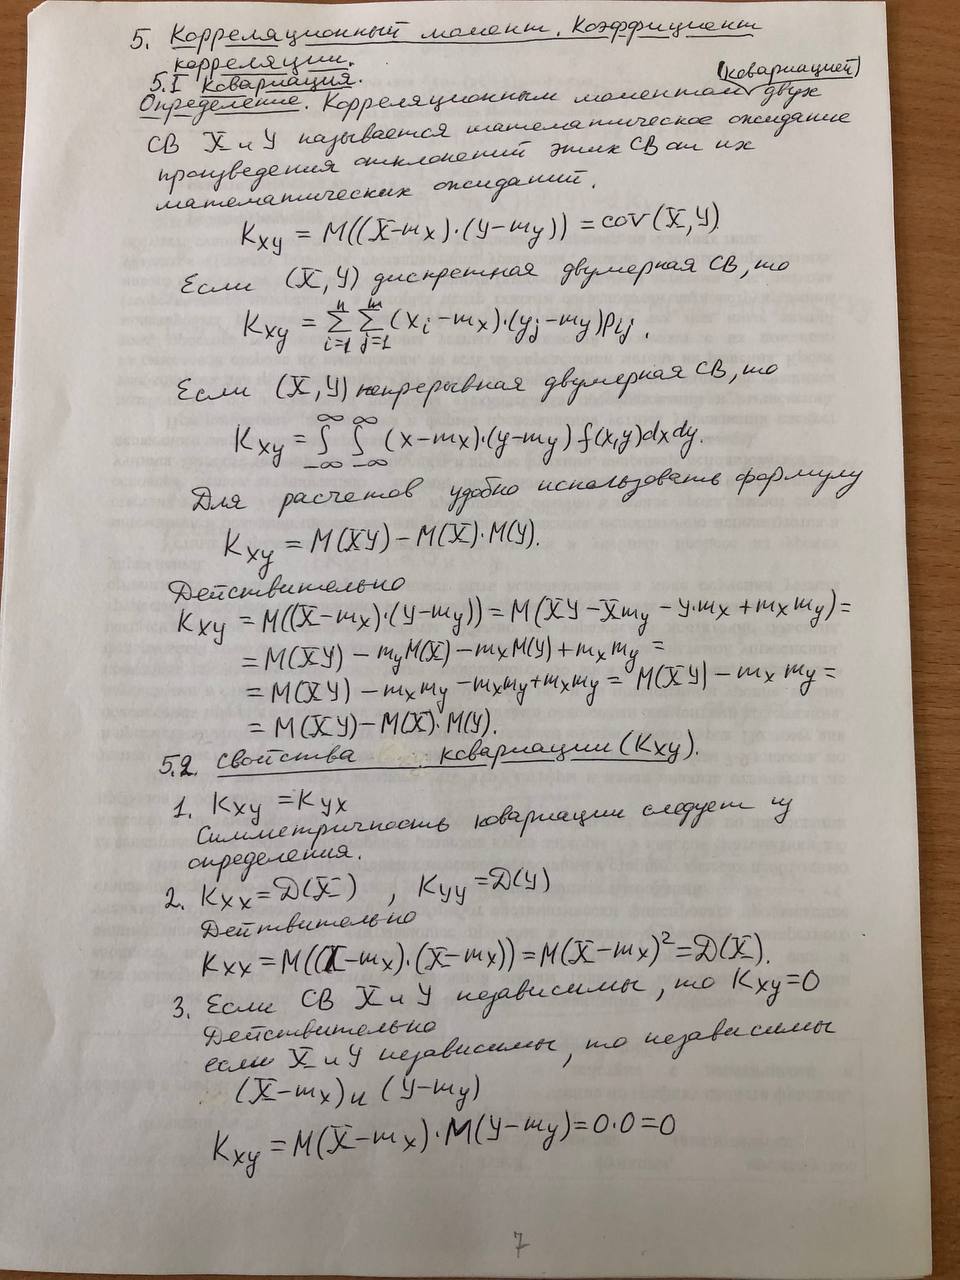 5. Корреляционный момент. Коэффициент
корреляции.
5.1 Ковариация.
(ковариацией)
Определение. Корреляционным моментом двух
СВ X и Y называется математическое ожидание
произведения отклонений этих СВ от их
математических ожиданий.
Kxy = M((X-mx)·(Y-my)) = cov(X,Y)
Если (X,Y) дискретная двумерная СВ, то
Kxy = Σ_{i=1}^{n} Σ_{j=1}^{m} (xi-mx)·(yj-my)Pij.
Если (X,Y) непрерывная двумерная СВ, то
Kxy = ∫_{-∞}^{∞} ∫_{-∞}^{∞} (x-mx)·(y-my) f(x,y)dxdy.
Для расчетов удобно использовать формулу
Kxy = M(XY) - M(X)·M(Y).
Действительно
Kxy = M((X-mx)·(Y-my)) = M(XY-Xmy-Y·mx+mxmy) =
= M(XY) - myM(X) - mxM(Y) + mxmy =
= M(XY) - mxmy - mxmy + mxmy = M(XY) - mxmy =
= M(XY) - M(X)·M(Y).
5.2. Свойства ковариации (Kxy).
1. Kxy = Kyx
Симметричность ковариации следует из
определения.
2. Kxx = D(X) , Kyy = D(Y)
Действительно
Kxx = M((X-mx)·(X-mx)) = M(X-mx)² = D(X).
3. Если СВ X и Y независимы, то Kxy=0
Действительно
если X и Y независимы, то независимы
(X-mx) и (Y-my)
Kxy = M(X-mx)·M(Y-my) = 0·0 = 0
7